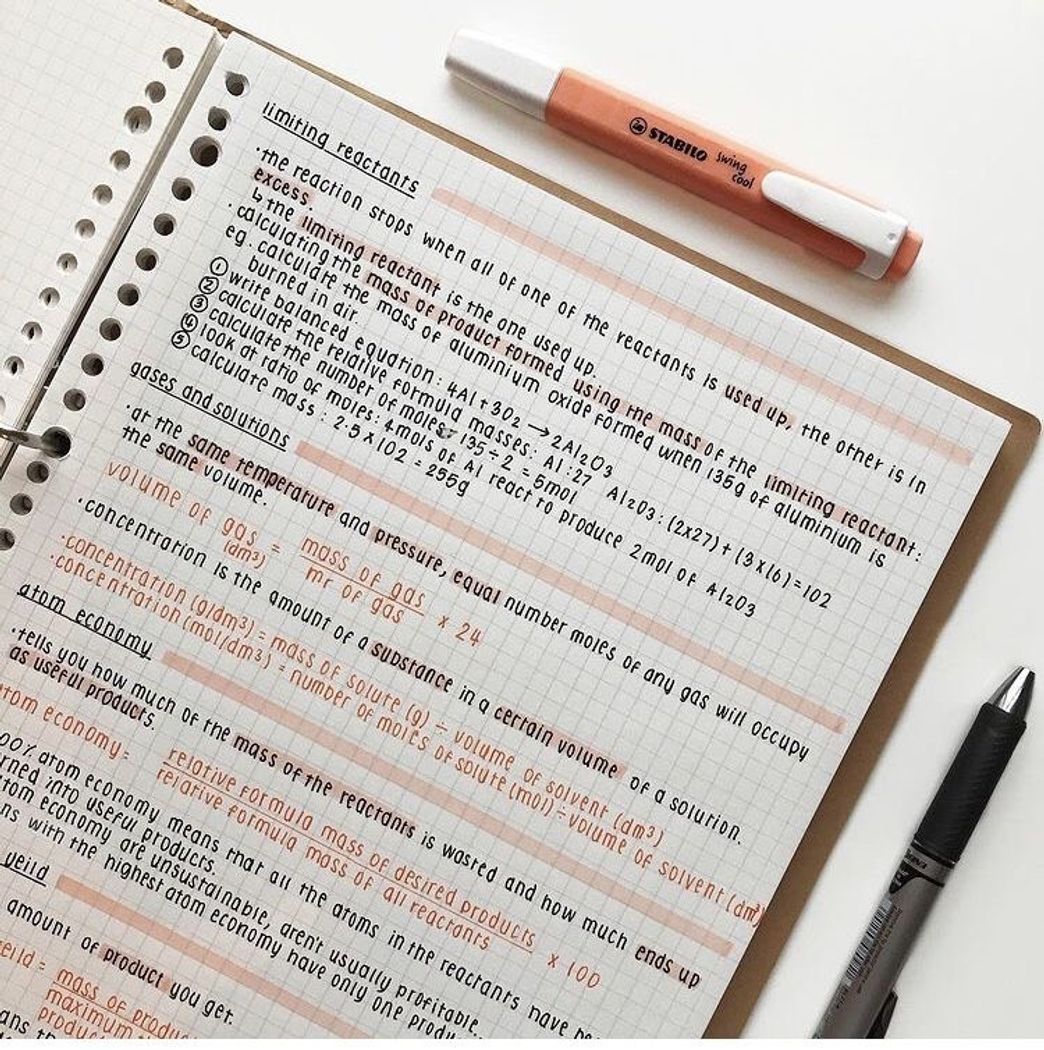 limiting reactants
·the reaction stops when all of one of the reactants is used up, the other is in
excess.
↳ the limiting reactant is the one used up.
·calculating the mass of product formed using the mass of the limiting reactant:
eg. calculate the mass of aluminium oxide formed when 135g of aluminium is
burned in air.
① write balanced equation: 4Al + 3O₂ → 2Al₂O₃
② calculate the relative formula masses: Al:27 Al₂O₃: (2x27) + (3x16) = 102
③ calculate the number of moles: 135 ÷ 2 = 5mol
④ look at ratio of moles: 4mols of Al react to produce 2mol of Al₂O₃
⑤ calculate mass: 2.5 x 102 = 255g
gases and solutions
·at the same temperature and pressure, equal number moles of any gas will occupy
the same volume.
volume of gas (dm³) = mass of gas / mr of gas x 24
·concentration is the amount of a substance in a certain volume of a solution.
·concentration (g/dm³) = mass of solute (g) ÷ volume of solvent (dm³)
·concentration (mol/dm³) = number of moles of solute (mol) ÷ volume of solvent (dm³)
atom economy
·tells you how much of the mass of the reactants is wasted and how much ends up
as useful products.
atom economy = relative formula mass of desired products / relative formula mass of all reactants x 100
00% atom economy means that all the atoms in the reactants have be
rned into useful products.
tom economy are unsustainable, aren't usually profitable...
ns with the highest atom economy have only one produ
yeild
amount of product you get.
eild = mass of produc
maximum th
produc
STABILO swing
cool